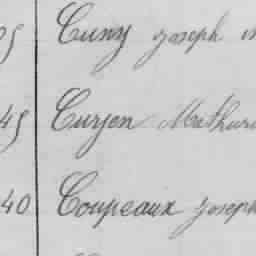 Cuny Joseph
45 Curjen Mathuri
40 Coupeaux Joseph